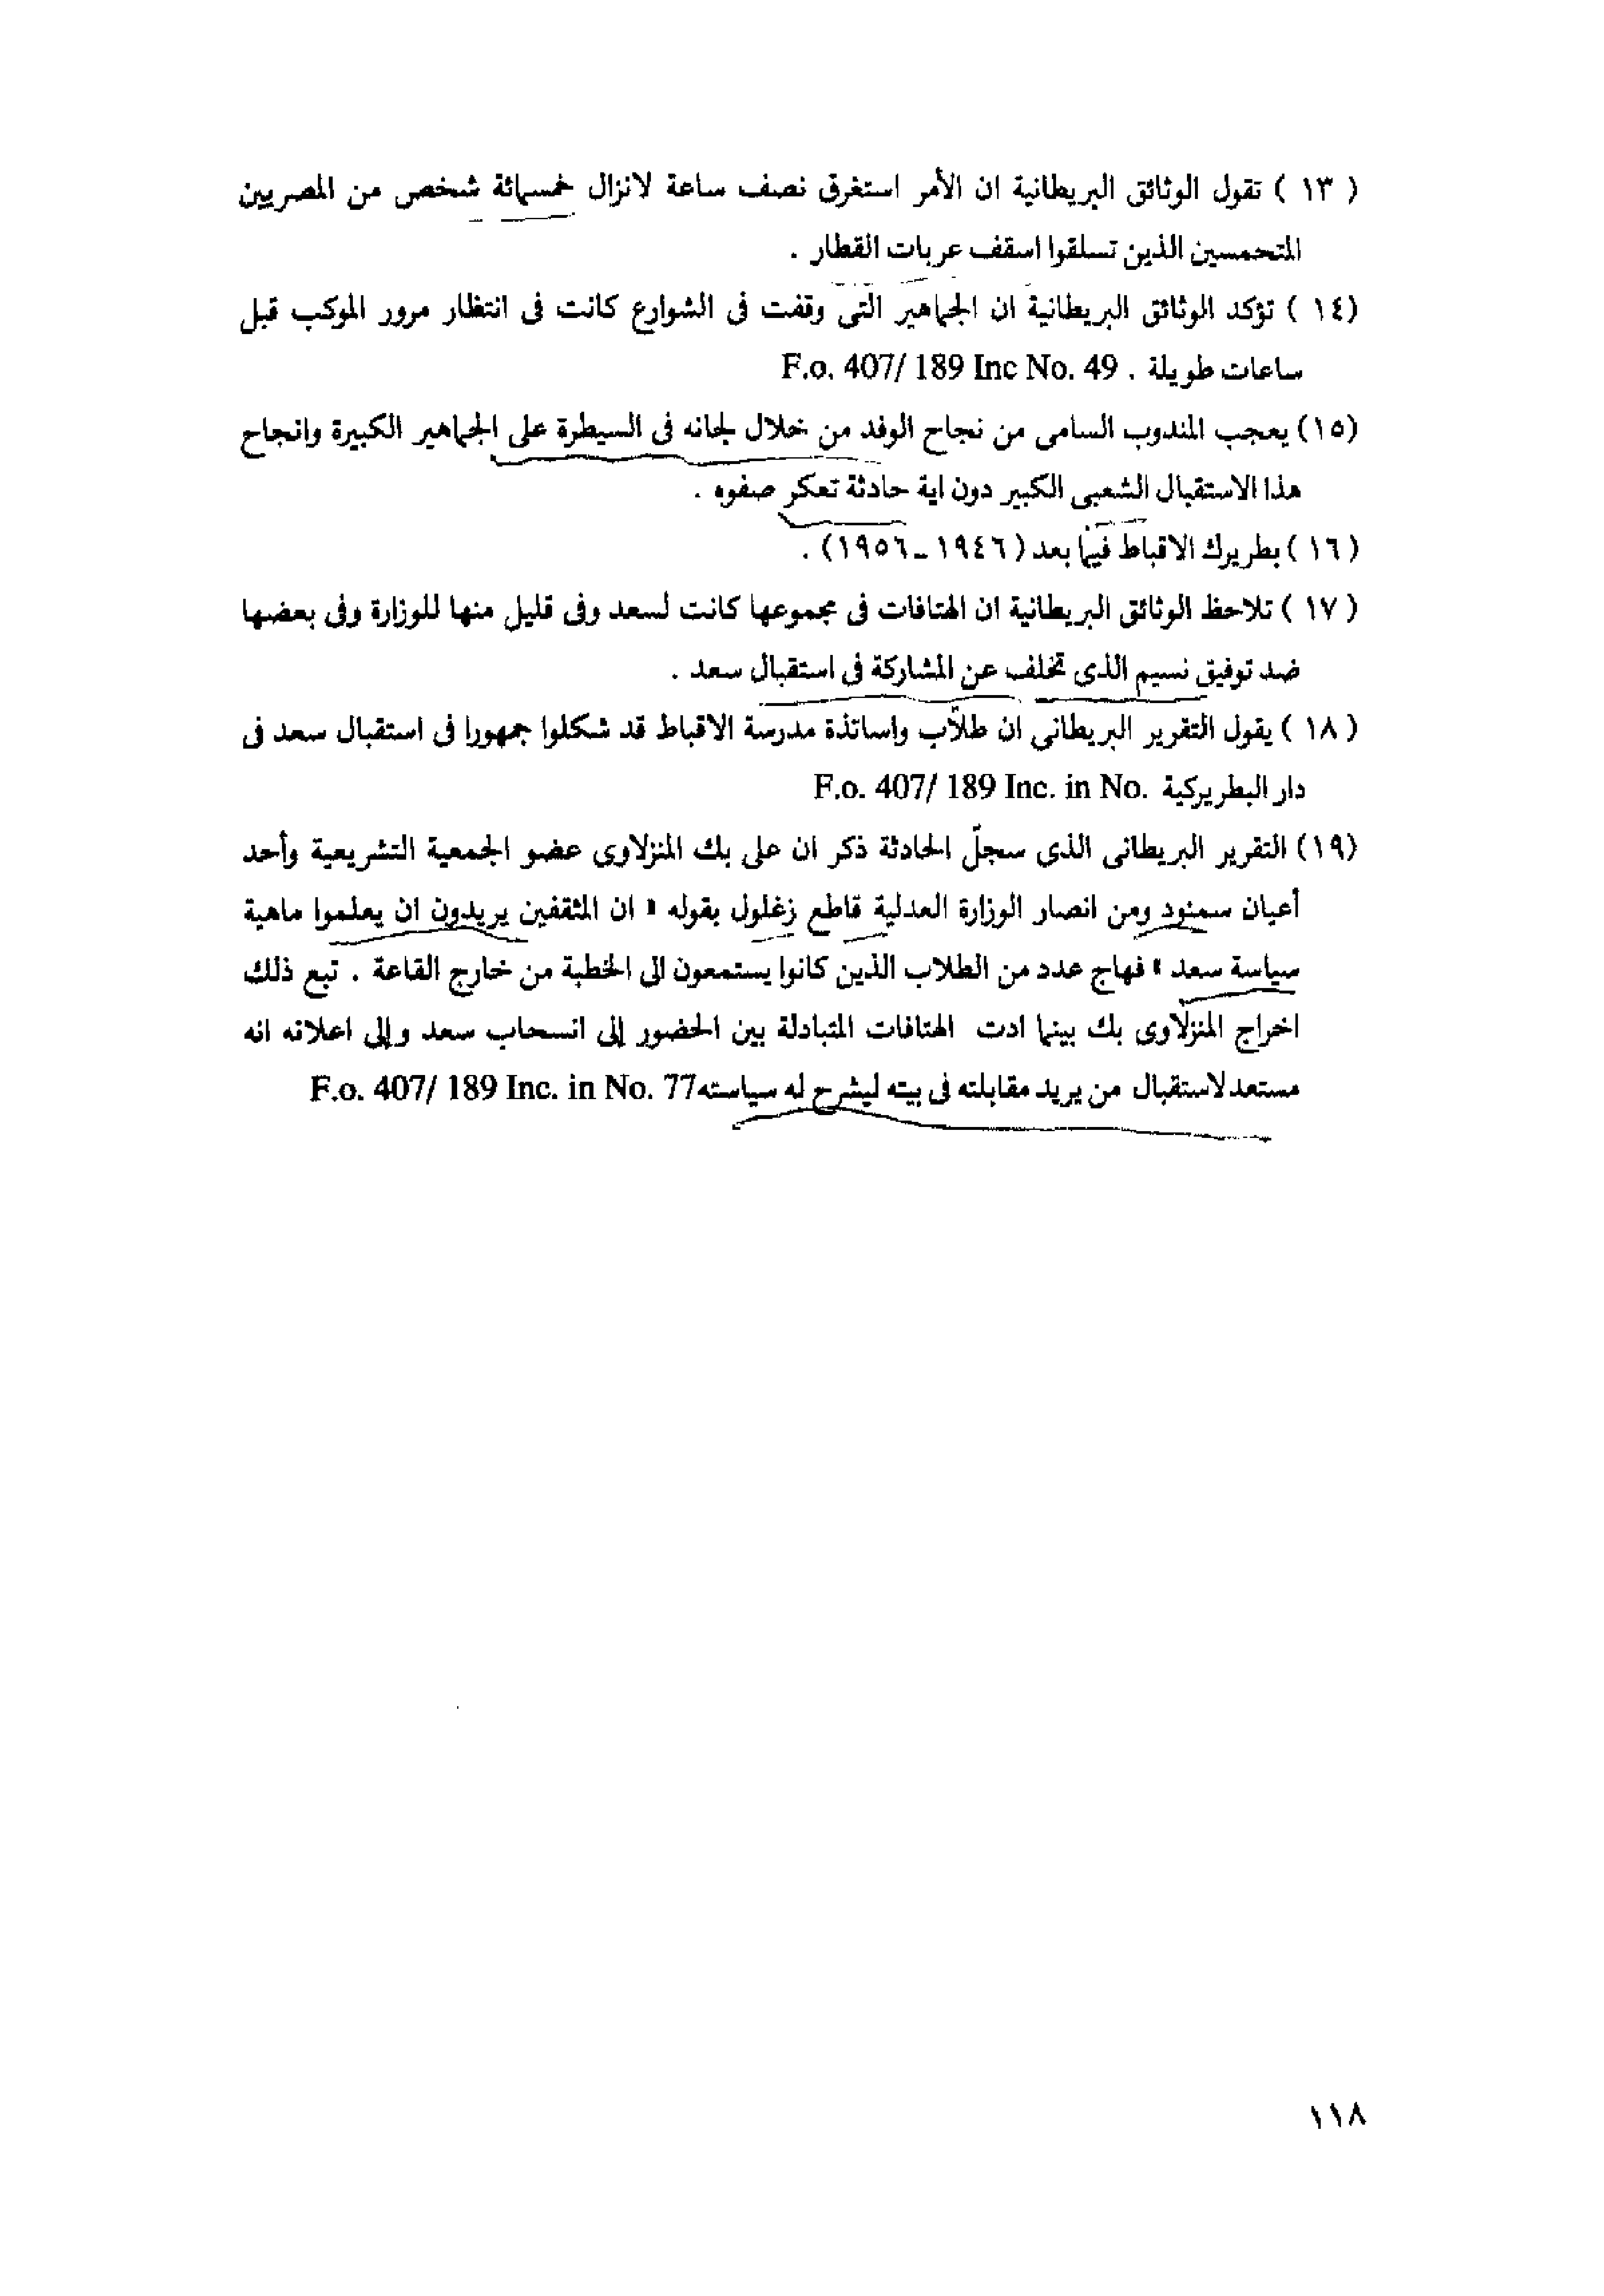 ( ١٣ ) تقول الوثائق البريطانية ان الأمر استغرق نصف ساعة لانزال خمسمائة شخص من المصريين
المتحمسين الذين تسلقوا اسقف عربات القطار .
(١٤ ) تؤكد الوثائق البريطانية ان الجماهير التى وقفت فى الشوارع كانت فى انتظار مرور الموكب قبل
ساعات طويلة . F.o. 407/ 189 Inc No. 49
(١٥) يعجب المندوب السامى من نجاح الوفد من خلال لجانه فى السيطرة على الجماهير الكبيرة وانجاح
هذا الاستقبال الشعبى الكبير دون اية حادثة تعكر صفوه .
(١٦ ) بطريرك الاقباط فيما بعد (١٩٤٦ - ١٩٥٦) .
( ١٧ ) تلاحظ الوثائق البريطانية ان الهتافات فى مجموعها كانت لسعد وفى قليل منها للوزارة وفى بعضها
ضد توفيق نسيم الذى تخلف عن المشاركة فى استقبال سعد .
( ١٨ ) يقول التقرير البريطانى ان طلّاب واساتذة مدرسة الاقباط قد شكلوا جمهورا فى استقبال سعد فى
دار البطريركية F.o. 407/ 189 Inc. in No.
(١٩) التقرير البريطانى الذى سجلّ الحادثة ذكر ان على بك المنزلاوى عضو الجمعية التشريعية وأحد
أعيان سمنود ومن انصار الوزارة العدلية قاطع زغلول بقوله « ان المثقفين يريدون ان يعلموا ماهية
سياسة سعد » فهاج عدد من الطلاب الذين كانوا يستمعون الى الخطبة من خارج القاعة . تبع ذلك
اخراج المنزلاوى بك بينما ادت الهتافات المتبادلة بين الحضور إلى انسحاب سعد وإلى اعلانه انه
مستعد لاستقبال من يريد مقابلته فى بيته ليشرح له سياسته F.o. 407/ 189 Inc. in No. 77
١١٨